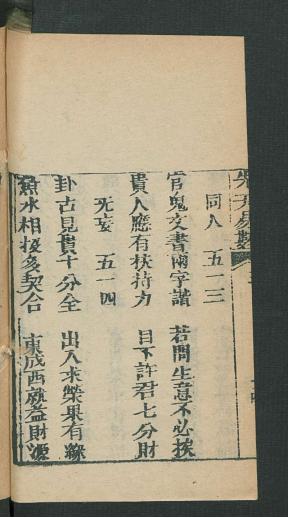 先天易數
同人 五一三
官鬼文書兩字諧 若問生意不必挨
貴人應有扶持力 目下許君七分財
无妄 五一四
卦占見貴十分全 出入求榮果有緣
魚水相投多契合 東成西就益財源